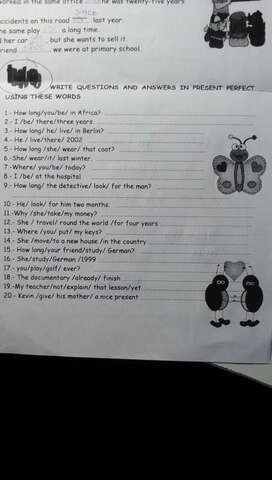 worked in the same office she was twenty-five years
since
accidents on this road last year.
the same play a long time.
her car but she wants to sell it.
friend we were at primary school.
WRITE QUESTIONS AND ANSWERS IN PRESENT PERFECT
USING THESE WORDS
1.- How long/you/be/ in Africa?
2.- I /be/ there/three years
3.- How long/ he/ live/ in Berlin?
4.- He / live/there/ 2002
5.- How long /she/ wear/ that coat?
6.-She/ wear/it/ last winter
7.-Where/ you/be/ today?
8.- I /be/ at the hospital
9.- How long/ the detective/ look/ for the man?
10.- He/ look/ for him two months.
11.-Why /she/take/my money?
12.- She / travel/ round the world /for four years
13.- Where /you/ put/ my keys?
14.- She /move/to a new house /in the country
15.- How long/your friend/study/ German?
16.- She/study/German /1999
17.- you/play/golf/ ever?
18.- The documentary /already/ finish
19.-My teacher/not/explain/ that lesson/yet
20.- Kevin /give/ his mother/ a nice present